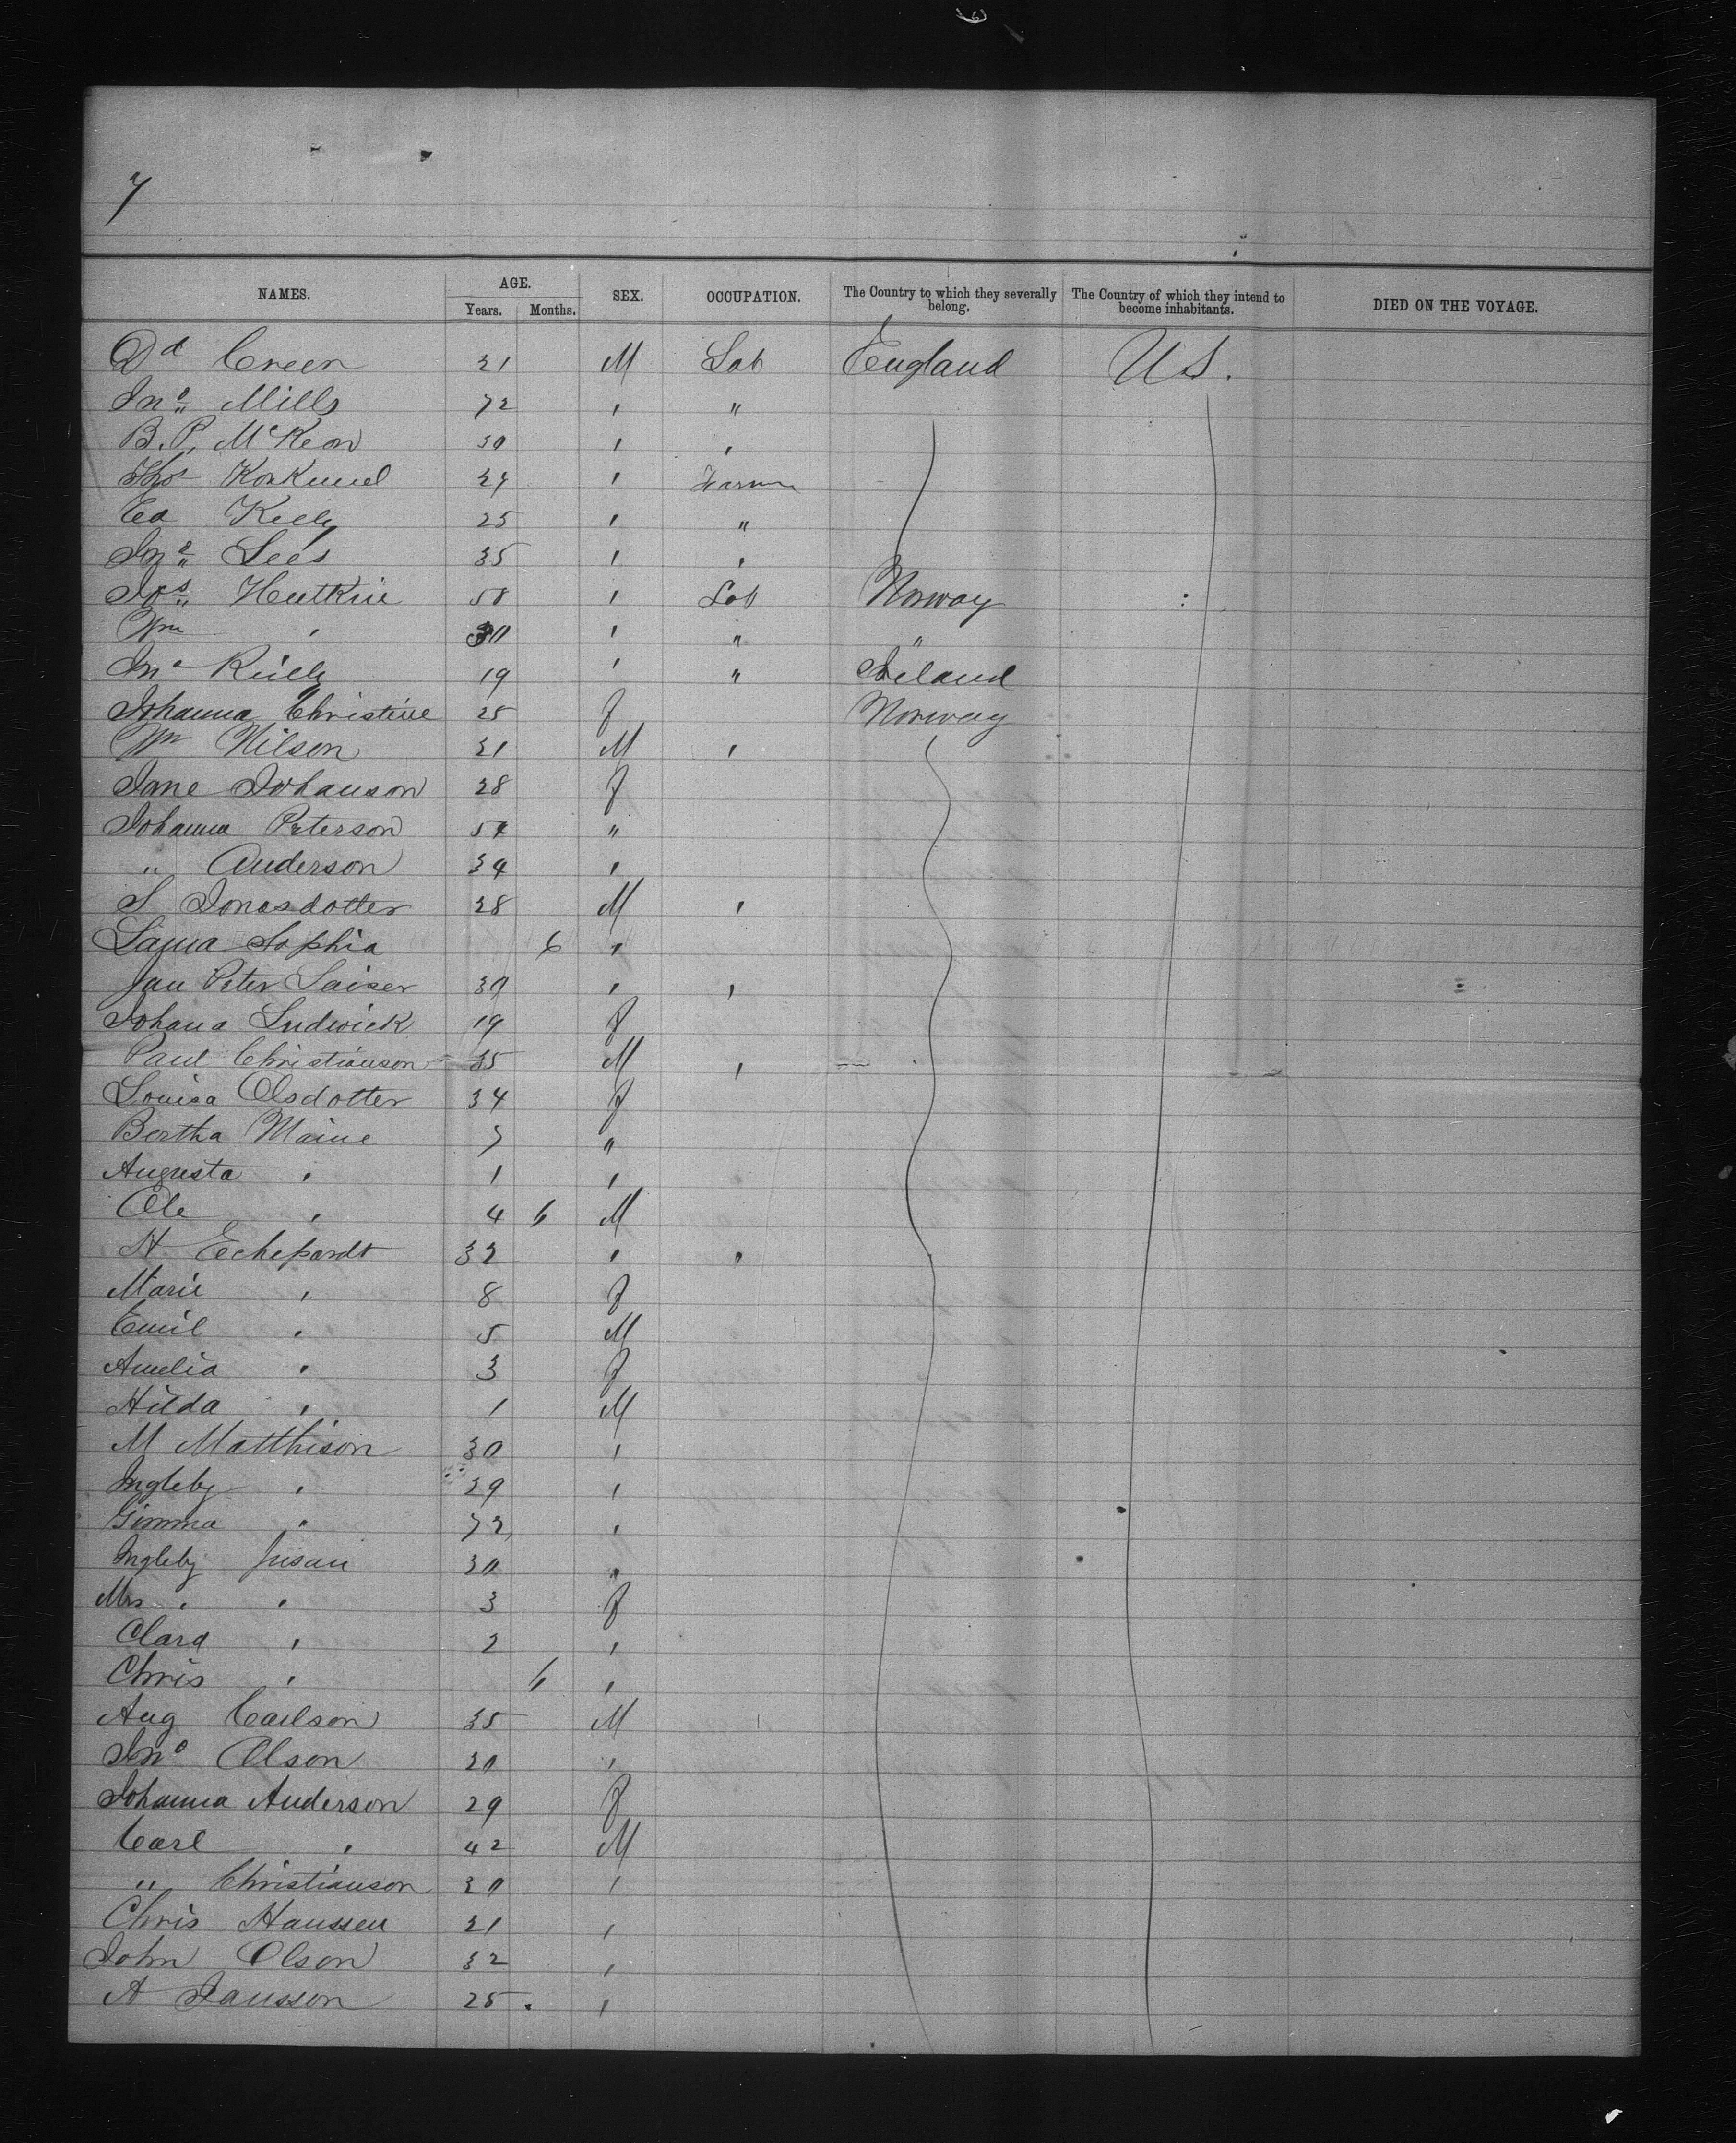 7
NAMES. AGE. Years. Months. SEX. OCCUPATION. The Country to which they severally belong. The Country of which they intend to become inhabitants. DIED ON THE VOYAGE.
Dd Green 21 M Lab England U S.
Jno Mills 72 " "
B. P. McKeon 30 " "
Thos 24 " Farmer
Ed Kiely 25 " "
Jno Lees 35 " "
Jos 58 " Lab Norway
Wm " 30 " " "
Jno Reilly 19 " " Ireland
Johanna Christine 25 f Norway
Wm Nilson 21 M "
Jane Johanson 28 f
Johanna Peterson 54 "
" Anderson 34 "
S Jonasdotter 28 M "
Laura Sophia 6 "
Jan Peter Laiser 30 " "
Johana Ludwick 19 f
Paul Christianson 35 M "
Louisa Olsdotter 34 f
Bertha Maine 7 "
Augusta " 1 "
Ole " 4 6 M
H Eckepardt 32 " "
Marie " 8 f
Emil " 5 M
Amelia " 3 f
Hilda " 1 M
M Matthison 30 "
Ingleby " 29 "
Gimma " 72 "
Ingleby Jusau 30 "
Mrs " " 3 f
Clara " 2 "
Chris " 6 "
Aug Carlson 35 M
Jno Olson 20 "
Johanna Anderson 29 f
Carl " 42 M
" Christianson 20 "
Chris Hanssen 21 "
John Olson 32 "
A Jansson 25 "